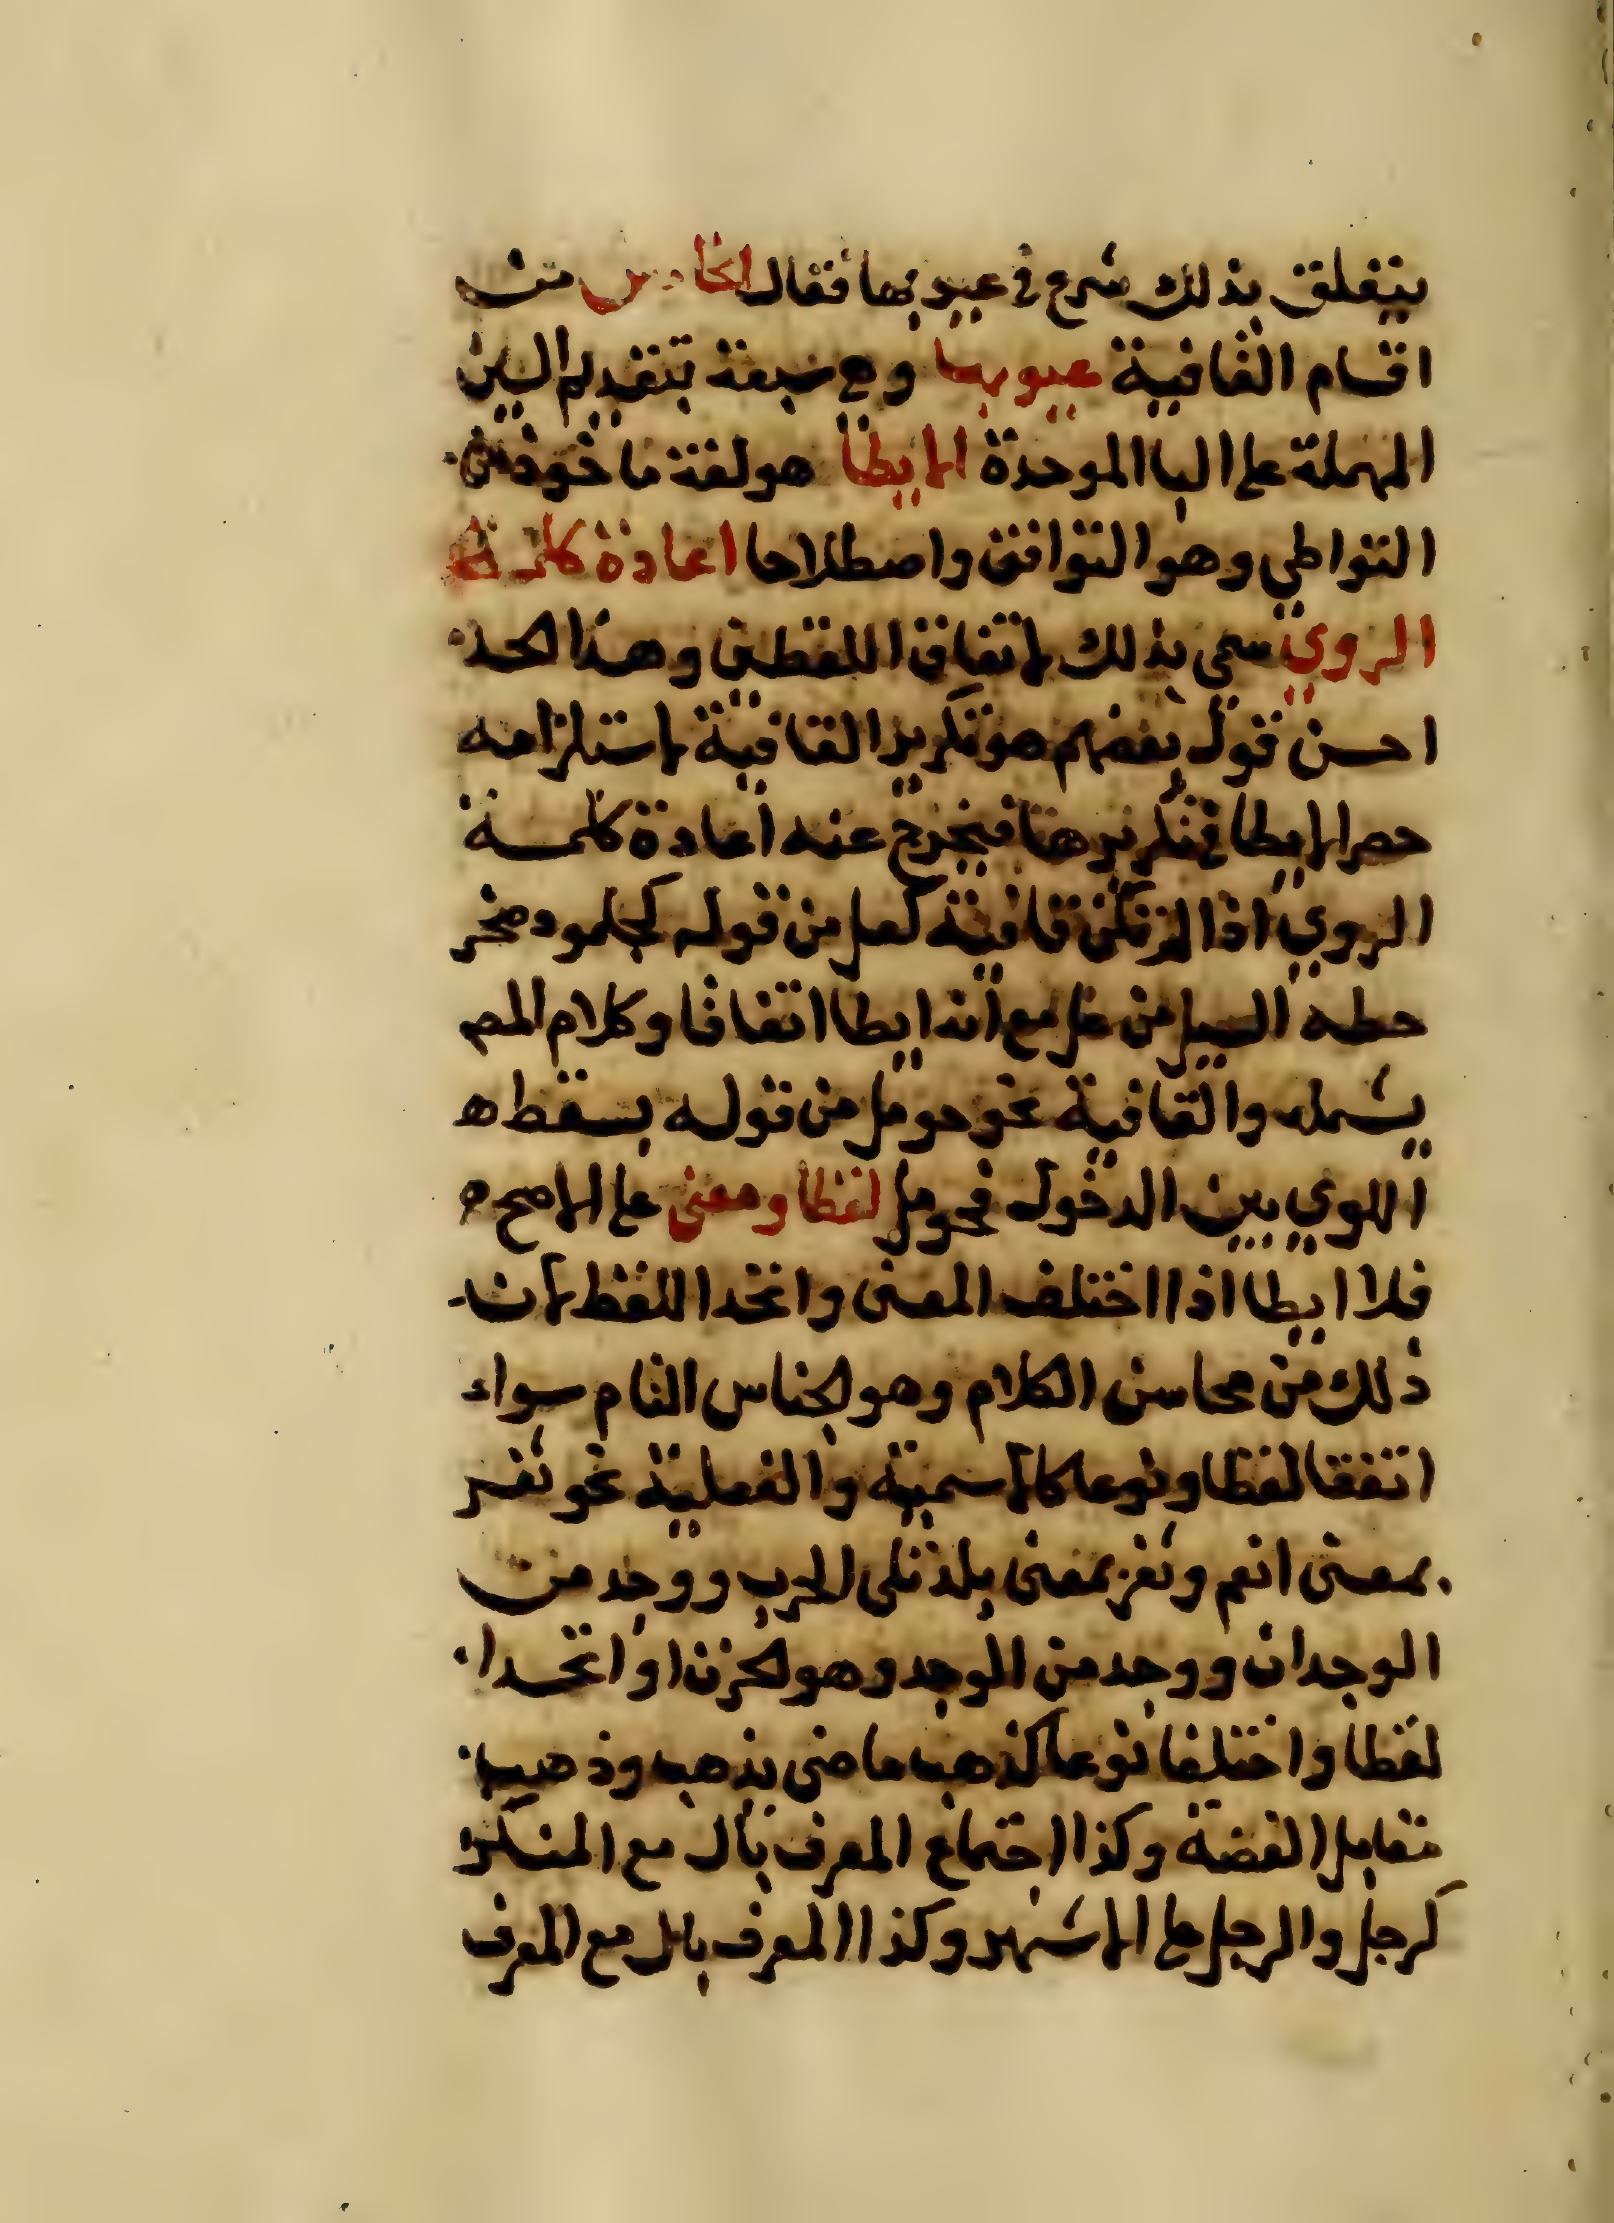 يتعلق بذلك شرع في عيوبها فقال الخامس من
اقسام القافية عيوبها وهي سبعة بتقديم السين
المهملة على البا الموحدة الايطا هو لغة ماخوذ من
التواطي وهو التوافق واصطلاحا اعادة كلمة
الروي سمي بذلك لاتفاق اللفظين وهذا الحد
احسن قول بعضهم هو تكرير القافية لاستلزامه
حصر الايطا في تكريرها فيخرج عنه اعادة كلمة
الروي اذا لم تكن قافية كعل من قوله كجلمود صخر
حطه السيل من عل مع انه ايطا اتفاقا وكلام المص
يشمله والقافية نحو حومل من قوله بسقط
اللوي بين الدخول فحومل لفظا ومعنى على الاصح
فلا ايطا اذا اختلف المعنى واتحد اللفظ لان
ذلك من محاسن الكلام وهو الجناس التام سواء
اتفقا لفظا ونوعا كالاسمية والفعلية نحو ثغر
بمعنى الفم وثغر بمعنى بلد تلى الحرب ووجد من
الوجدان ووجد من الوجد وهو الحزن او اتحدا
لفظا واختلفا نوعا كذهب ماضي يذهب وذهب
مقابل الفضة وكذا اجتماع المعرف بال مع المنكر
كرجل والرجل على الاشهر وكذا المعرف بال مع المعرف